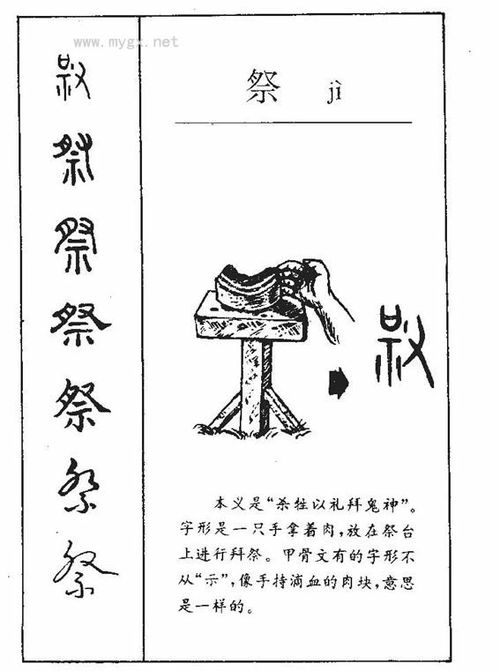 www.mygx.net
祭 jì
祭
祭
祭
祭
祭
祭
祭
本义是“杀牲以礼拜鬼神”。
字形是一只手拿着肉,放在祭台
上进行拜祭。甲骨文有的字形不
从“示”,像手持滴血的肉块,意思
是一样的。